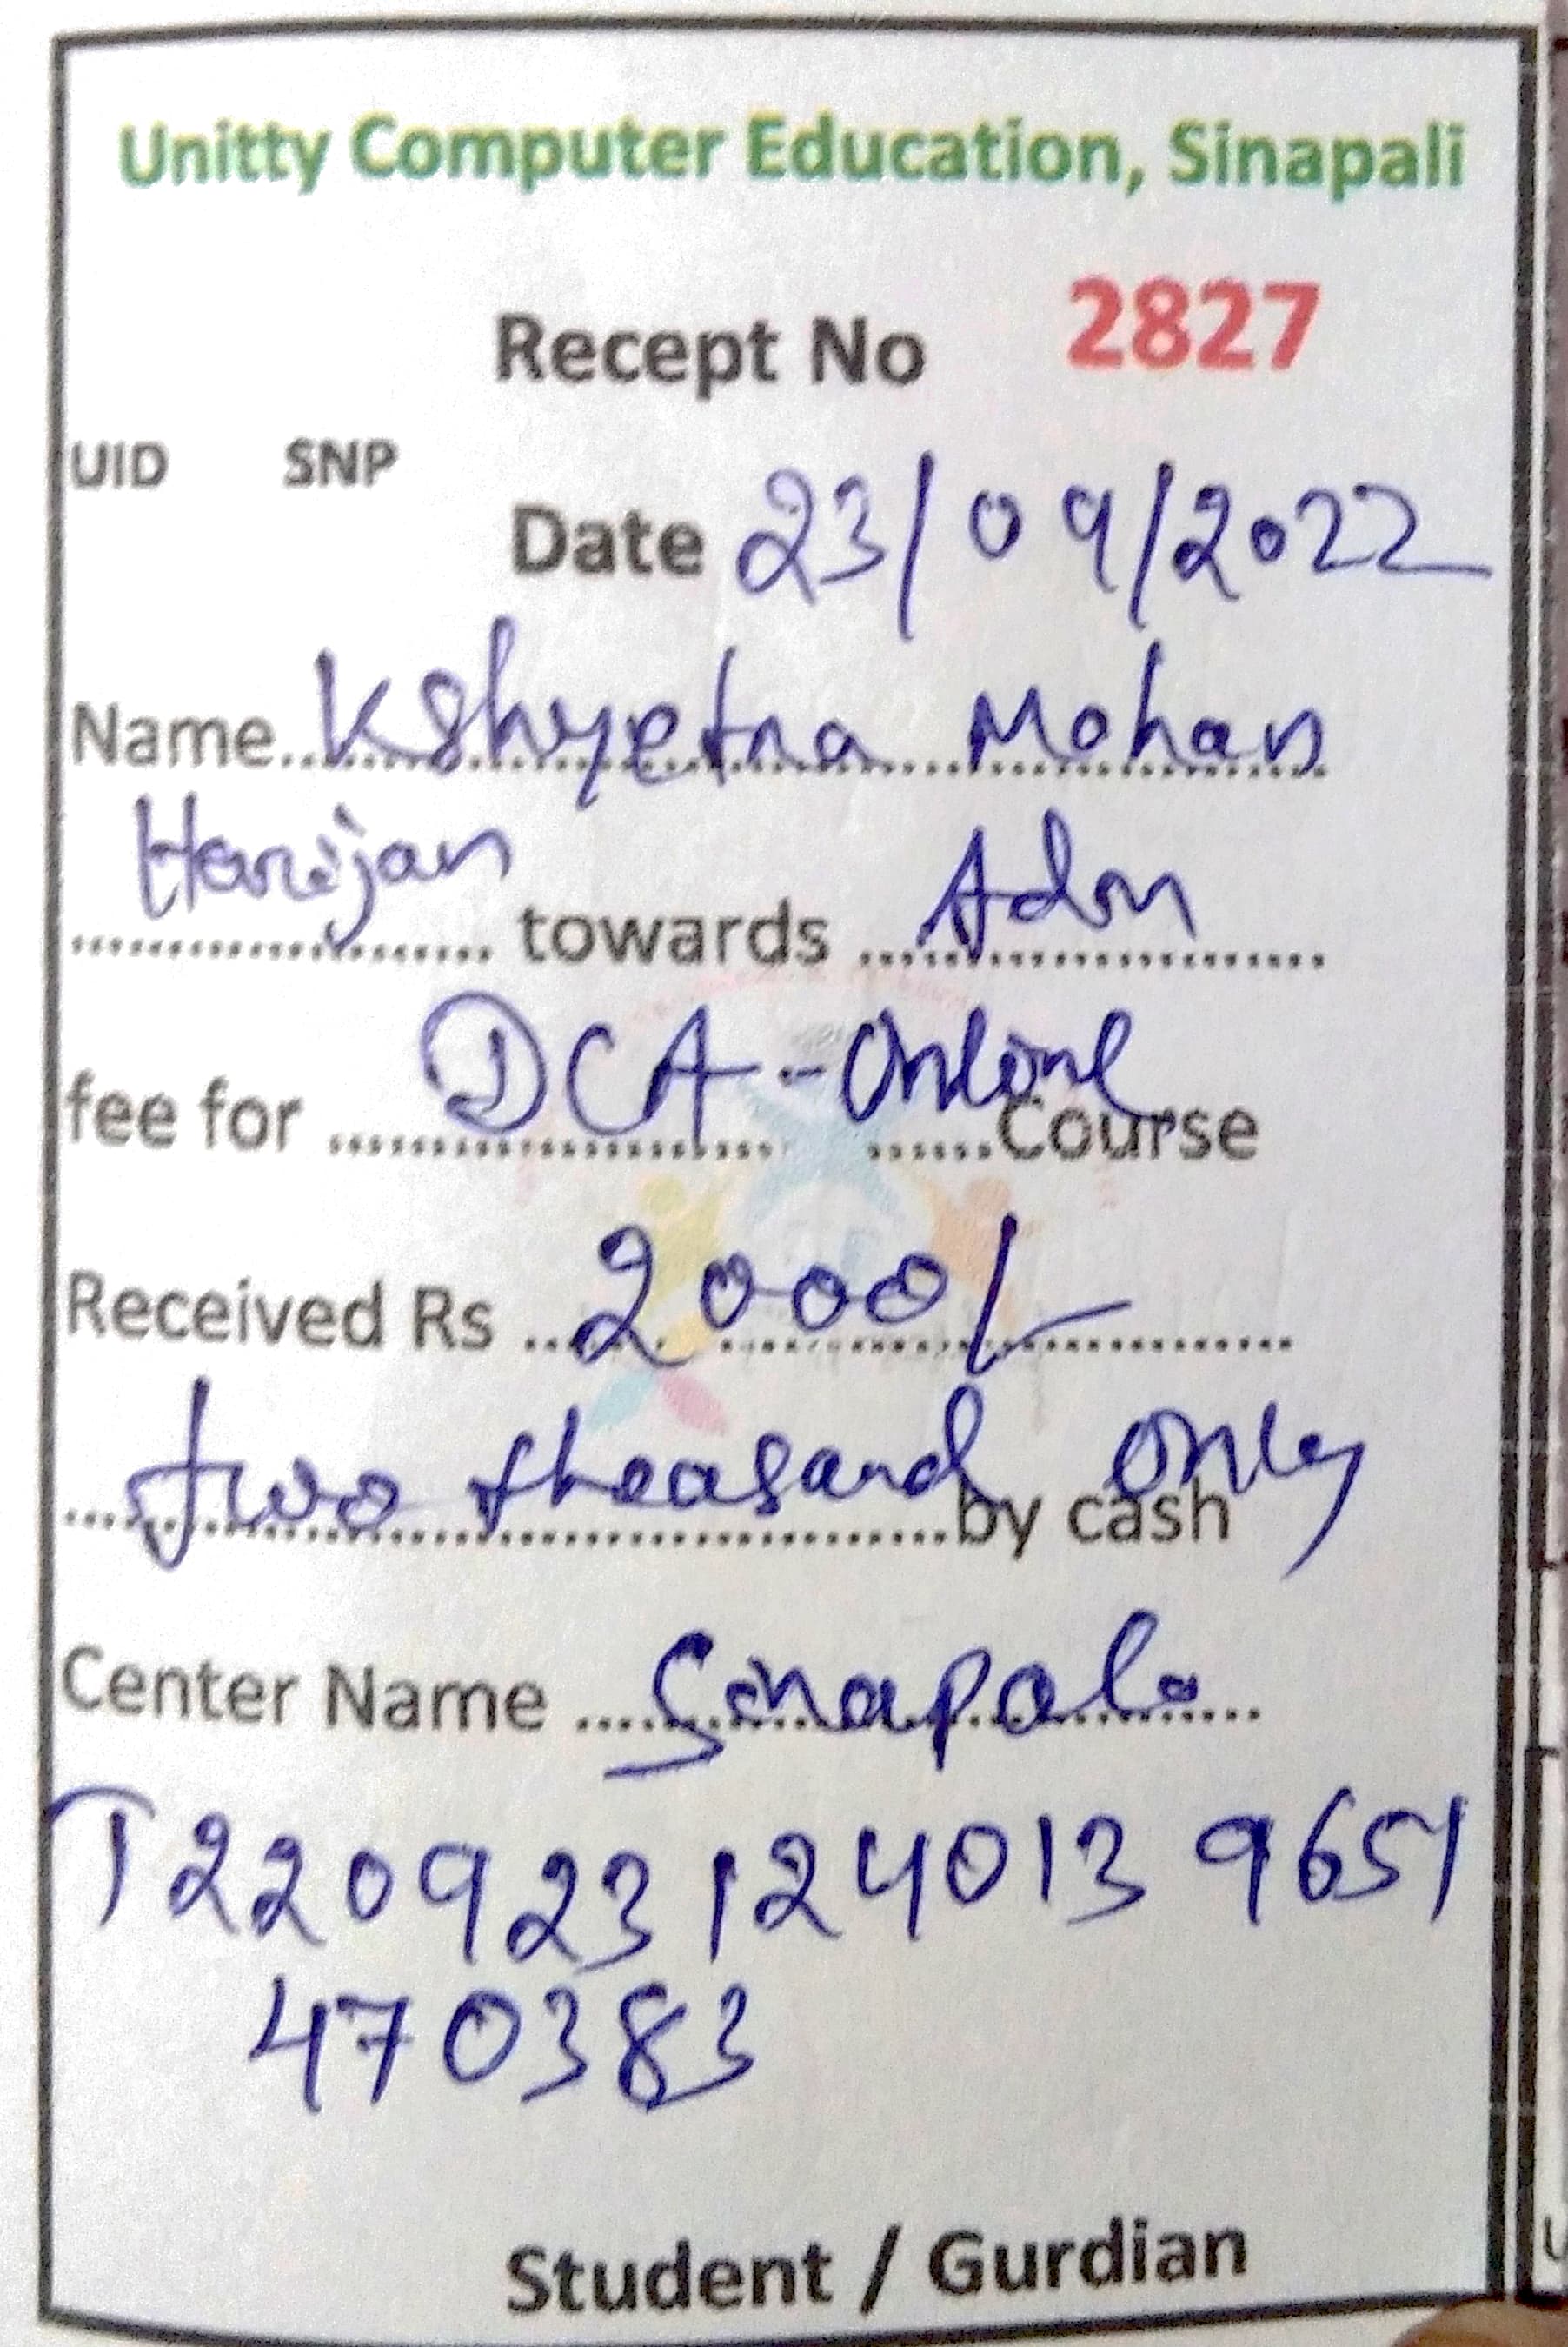 Unitty Computer Education, Sinapali
Recept No 2827
UID SNP
Date 23/09/2022
Name..Kshyetra Mohan
Harijan
towards Adm
fee for DCA-Online Course
Received Rs 2000/-
two theasand only
by cash
Center Name Sinapali
T220923124013 9651
470383
Student / Gurdian